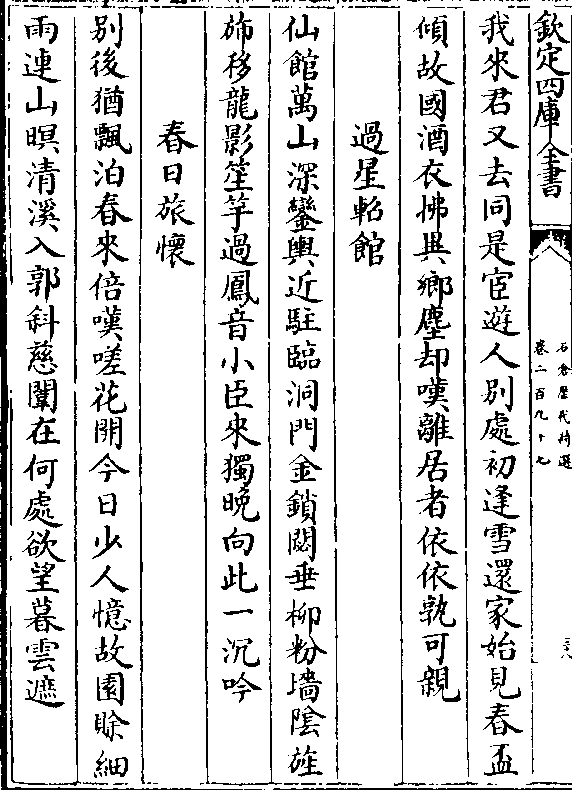 欽定四庫全書
石倉歷代詩選
卷二百九十七
三六
我來君又去同是宦遊人別處初逢雪還家始見春盃
傾故國酒衣拂異鄉塵却嘆離居者依依孰可親
過星軺館
仙館萬山深鑾輿近駐臨洞門金鎖閟垂柳粉墻陰旌
斾移龍影笙竽過鳳音小臣來獨晚向此一沉吟
春日旅懷
別後猶飄泊春來倍嘆嗟花開今日少人憶故園賒細
雨連山暝清溪入郭斜慈闈在何處欲望暮雲遮